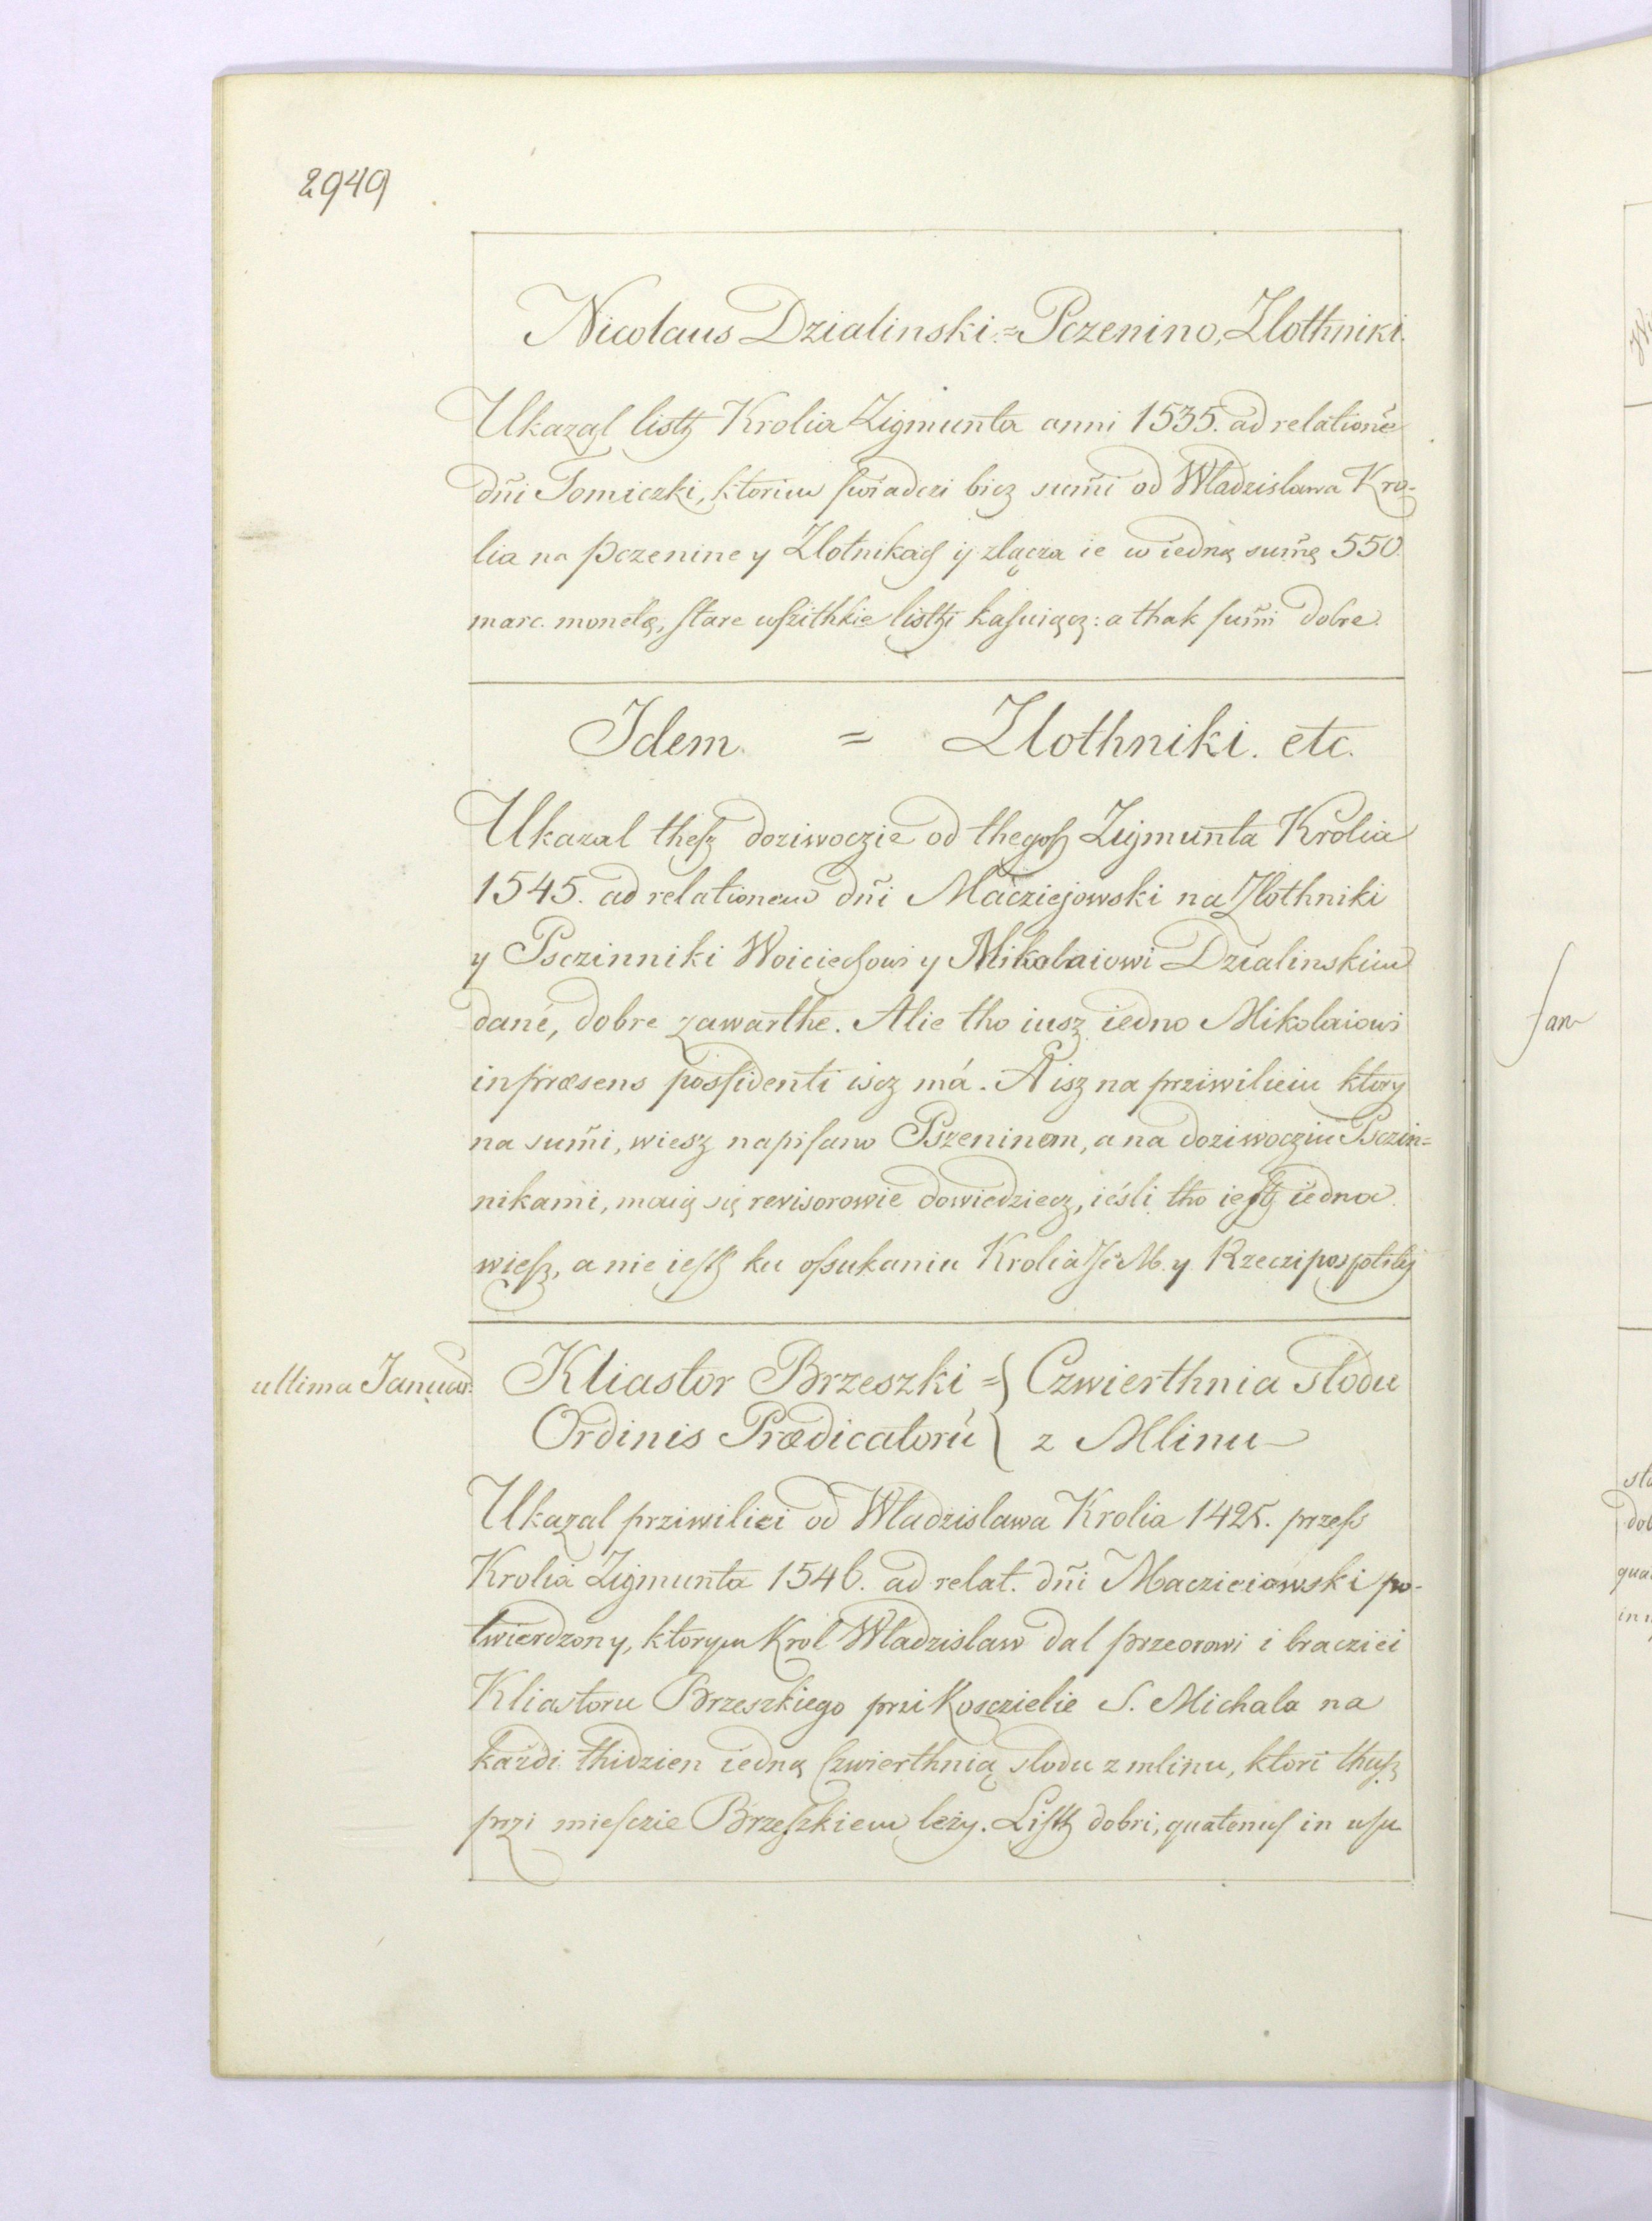 2949
Nicolaus Dzialinski = Pczenino, Zlothniki.
Ukazal listh Krolia Zigmunta anni 1535. ad relationē
dn̄i Tomiczki, ktorim swiadczi bicz sum̄i od Wladzislawa Kro-
lia na Pczenine y Zlotnikach ij zlącza ie w iedną sum̄ę 550.
marc. monetą, stare wszithkie listhi kasuiącz: a thak sum̄i dobre.
Idem. = Zlothniki. etc.
Ukazal thesz doziwoczie od thegosz Zigmunta Krolia
1545. ad relationem dn̄i Macziejowski na Zlothniki
y Psczinniki Woiciechowi y Mikolaiowi Dzialinskim
dané, dobre zawarthe. Alie tho iusz iedno Mikolaiowi
in præsens possidenti iscz má. A isz na prziwilieiu ktory
na sum̄i, wiesz napisano Pszeninem, a na doziwocziu Psczin=
nikami, maią się revisorowie dowiedziecz, iésli tho iesth iedna
wiesz, a nie iesth ku oszukaniu Krolia Je° M. y Rzeczipospolitej
ultima Januar.
Kliastor Brzeszki = Czwierthnia slodu
Ordinis Prædicatorū z Mlinu
Ukazal prziwiliei od Wladzislawa Krolia 1425. przesz
Krolia Zigmunta 1546. ad relat. dn̄i Maczieiowski po-
twierdzony, ktorym Krol Wladzislaw dal przeorowi i bracziei
Kliastoru Brzeszkiego przi Kosczielie S. Michala na
każdi thidzien iedną czwierthnią slodu z mlinu, ktori thusz
przi miesczie Brzeszkiem leży. Listh dobri, quatenus in usu
Jan